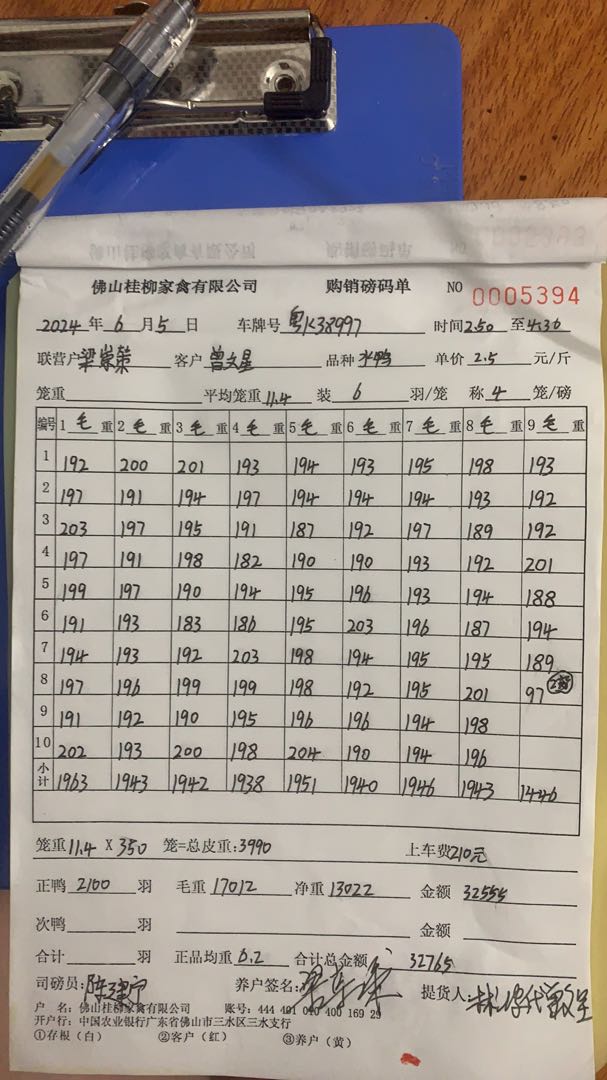 佛山桂柳家禽有限公司 购销磅码单 NO 0005394
2024 年 6 月 5 日 车牌号 粤K38997 时间 2.50 至 4.30
联营户 梁崇荣 客户 曾文星 品种 水鸭 单价 2.5 元/斤
笼重 平均笼重 11.4 装 6 羽/笼 称 4 笼/磅
编号 1 毛 重 2 毛 重 3 毛 重 4 毛 重 5 毛 重 6 毛 重 7 毛 重 8 毛 重 9 毛 重
1 192 200 201 193 194 193 195 198 193
2 197 191 194 197 194 194 194 193 192
3 203 197 195 191 187 192 197 189 192
4 197 191 198 182 190 190 193 192 201
5 199 197 190 194 195 196 193 194 188
6 191 193 183 186 195 203 196 187 194
7 194 193 192 203 198 194 195 195 189
8 197 196 199 199 198 192 195 201 97
9 191 192 190 195 196 196 194 198
10 202 193 200 198 204 190 194 196
小计 1963 1943 1942 1938 1951 1940 1946 1943 1446
笼重 11.4 X 350 笼=总皮重: 3990 上车费 210元
正鸭 2100 羽 毛重 17012 净重 13022 金额 32555
次鸭 羽 金额
合计 羽 正品均重 6.2 合计总金额 32765
司磅员: 养户签名: 提货人:
户 名: 佛山桂柳家禽有限公司 账号: 444 491 010 400 169 29
开户行: 中国农业银行广东省佛山市三水区三水支行
①存根（白） ②客户（红） ③养户（黄）